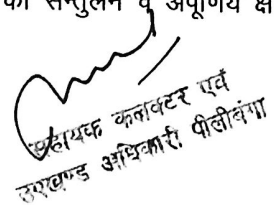 का सन्तुलन व अपूर्णीय क्ष
सहायक कलक्टर एवं
उपखण्ड अधिकारी पीलीबंगा